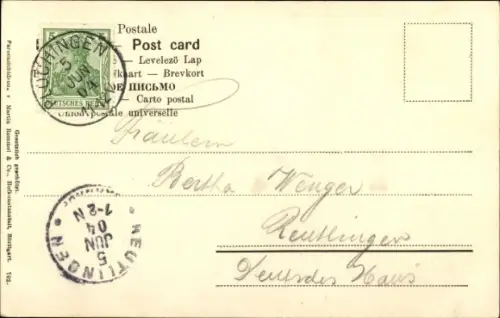 Postale
Post card
Levelező Lap
kaart — Brevkort
ОЕ ПИСЬМО
— Carto postal
Union postale universelle
5
DEUTSCHES REICH
5
JUN
04
Fräulein
Bertha Wenger
Reutlingen
Deutsches Haus
REUTLINGEN
5
JUN
04
1-2 N
Gesetzlich geschützt.
Martin Rommel & Co., Hofkunstanstalt, Stuttgart.